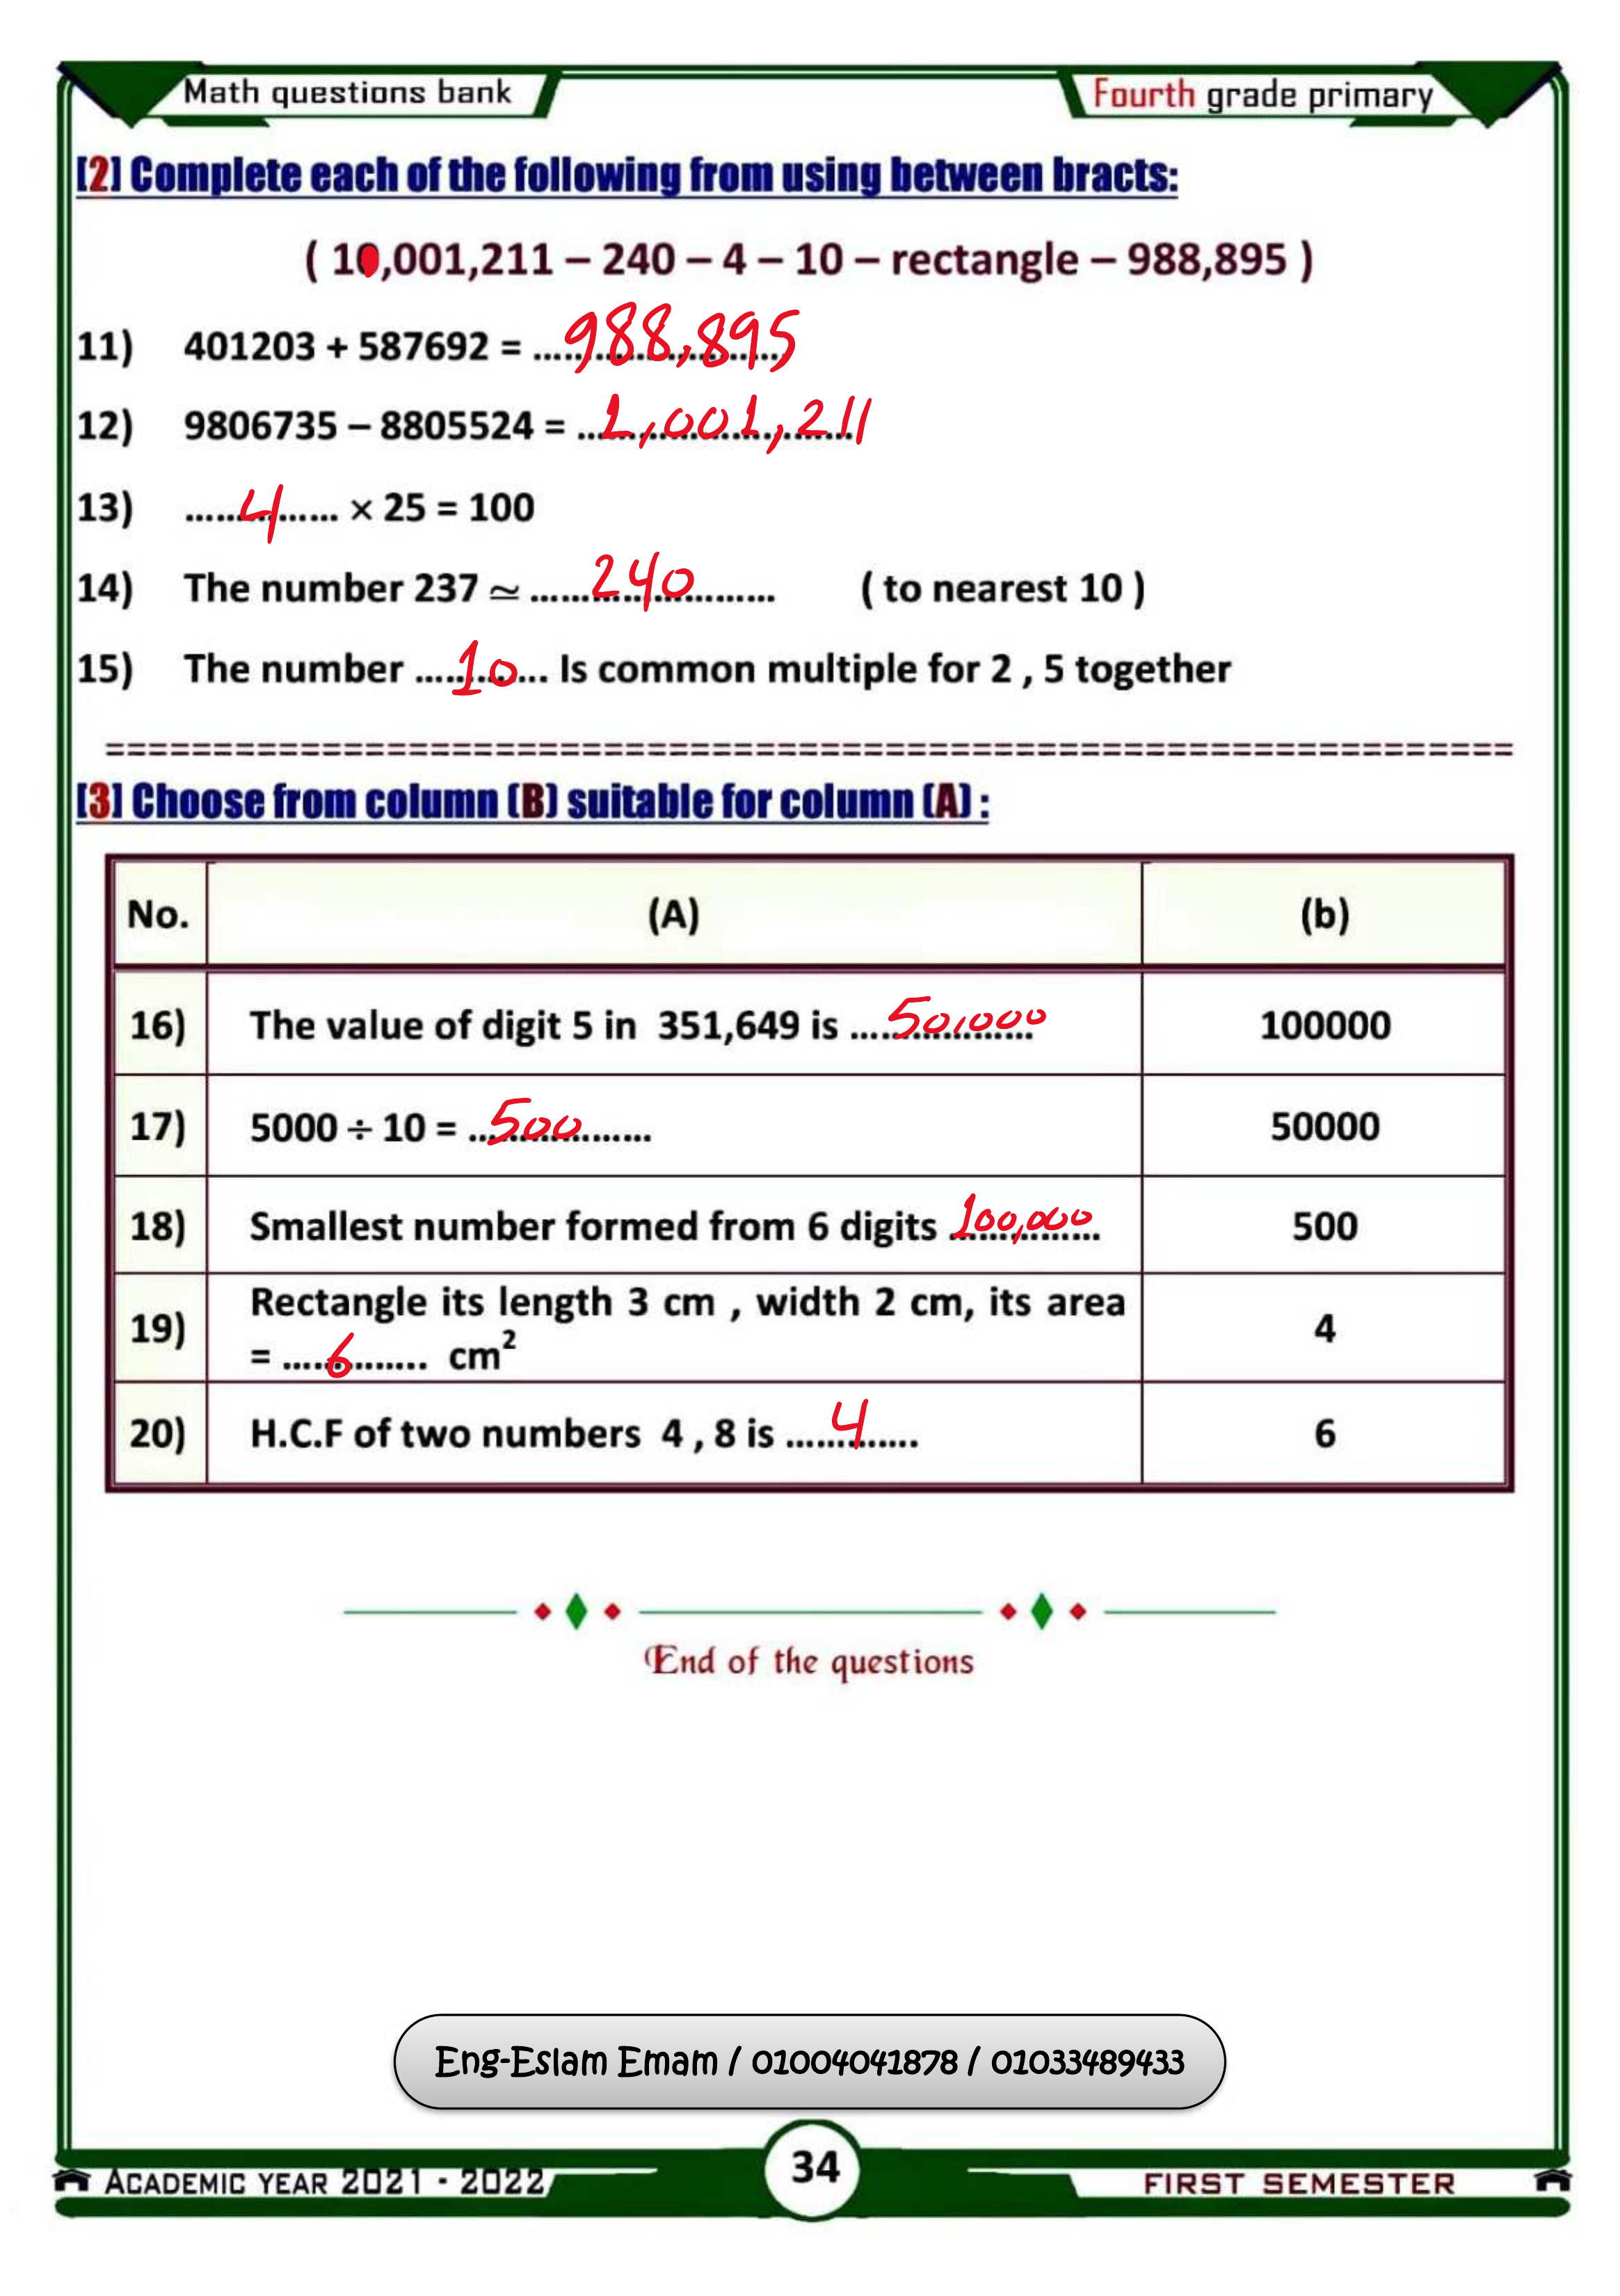 Math questions bank
Fourth grade primary
[2] Complete each of the following from using between bracts:
( 10,001,211 – 240 – 4 – 10 – rectangle – 988,895 )
11) 401203 + 587692 = ........................ 988,895
12) 9806735 – 8805524 = ........................ 1,001,211
13) ............... 4 × 25 = 100
14) The number 237 ≃ ........................ 240 ( to nearest 10 )
15) The number ............. 10 Is common multiple for 2 , 5 together
==================================================================
[3] Choose from column (B) suitable for column (A) :
No. (A) (b)
16) The value of digit 5 in 351,649 is .................. 50,000 100000
17) 5000 ÷ 10 = .................. 500 50000
18) Smallest number formed from 6 digits ............... 100,000 500
19) Rectangle its length 3 cm , width 2 cm, its area
= .............. 6 cm² 4
20) H.C.F of two numbers 4 , 8 is ............. 4 6
End of the questions
Eng-Eslam Emam / 01004041878 / 01033489433
34
ACADEMIC YEAR 2021 - 2022
FIRST SEMESTER